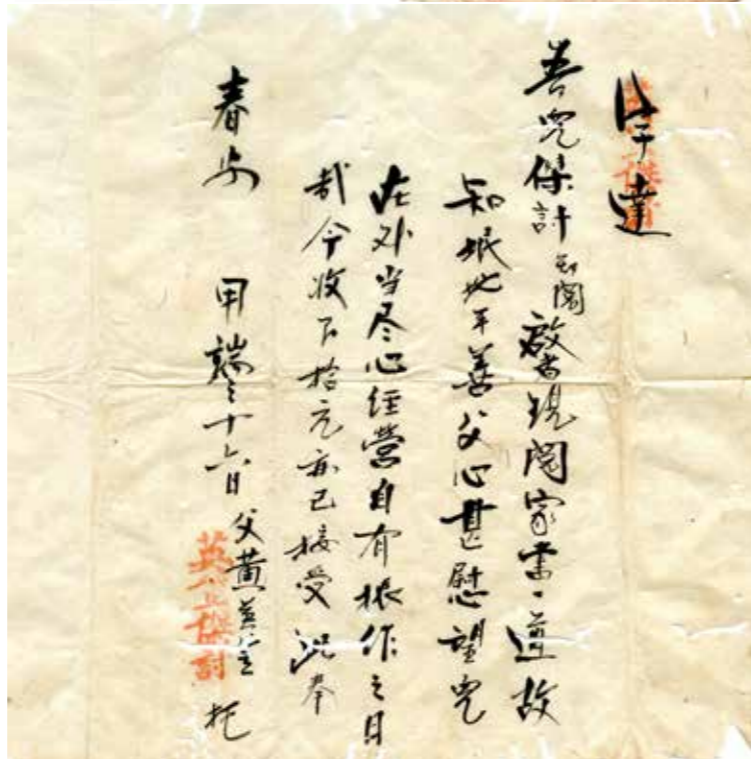 字達
善児保計知閲啟者現閲家書、道故
知垊地平善父心甚慰望児
在外当尽心经营自有振作之日
哉今收下拾元亦已接受此奉
春安
甲端之十六日父黄英 托
英 傑討